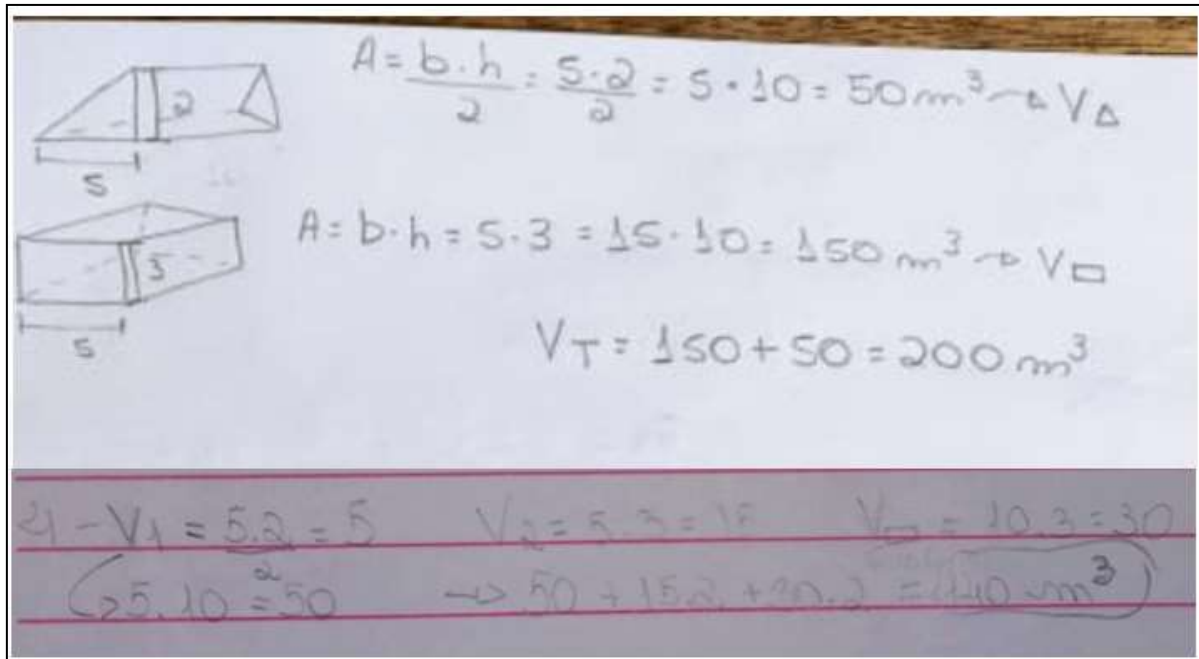 A = b·h/2 = 5·2/2 = 5·10 = 50 m³ → V△
2
5
A = b·h = 5·3 = 15·10 = 150 m³ → V▭
3
5
V_T = 150 + 50 = 200 m³
4 - V₁ = 5.2/2 = 5 V₂ = 5.3 = 15 V▭ = 10.3 = 30
↳ 5.10 = 50 → 50 + 15.2 + 30.2 = 140 m³